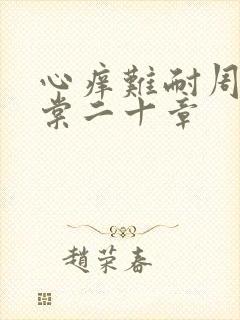 心痒難耐周
棠二十章
趙荣春